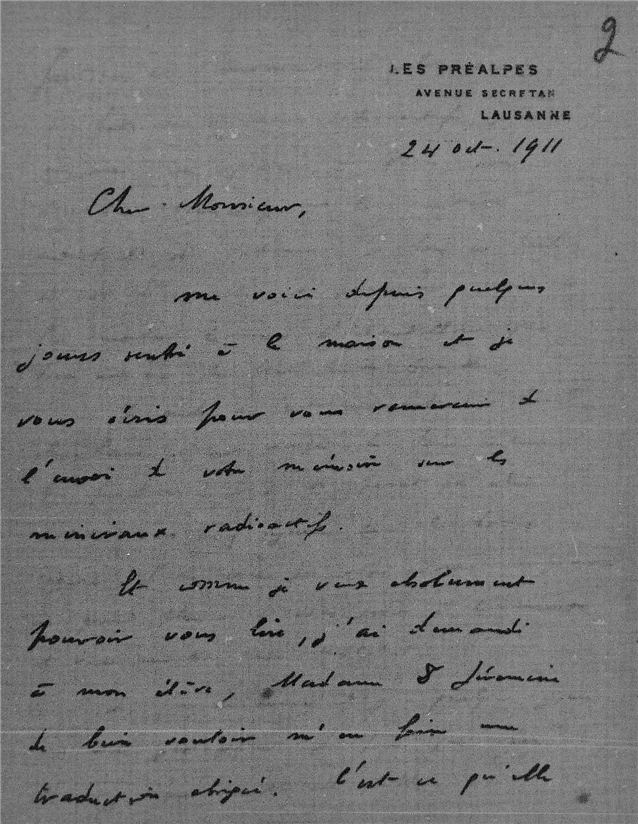 2
LES PRÉALPES
AVENUE SECRETAN
LAUSANNE
24 oct. 1911
Cher Monsieur,
me voici depuis quelques
jours rentré à la maison et je
vous écris pour vous remercier de
l'envoi de votre mémoire sur les
minéraux radioactifs.
Et comme je veux absolument
pouvoir vous lire, j'ai demandé
à mon élève, Madame
de bien vouloir m'en faire une
traduction abrégée. C'est ce qu'elle